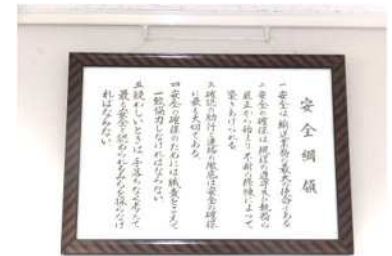 安全綱領
一 安全は、輸送業務の最大の使命である
二 安全の確保は、規程の遵守及び執務の
厳正から始まり、不断の修練によって
築きあげられる
三 確認の励行と連絡の徹底は、安全の確保
に最も大切である。
四 安全の確保のためには、職責をこえて
一致協力しなければならない。
五 疑わしいときは、手落ちなく考えて
最も安全と認められるみちを採らなけ
ればならない。